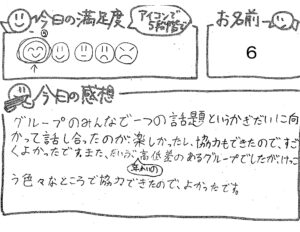 今日の満足度
アイコンで
5段階で
お名前
6
今日の感想
グループのみんなで一つの話題というかぎだいに向
かって話し合ったのが楽しかったし、協力もできたので、すご
くよかったです。また、だいぶ高低差のあるグループでしたがけっこ
年れいの
う色々なところで協力できたので、よかったです。